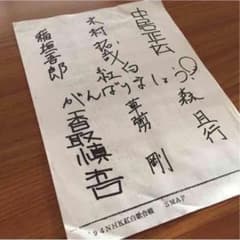 中居正広
木村拓哉
稲垣吾郎
森且行
草彅剛
香取慎吾
紅白がんばりましょう
94NHK紅白歌合戦 SMAP